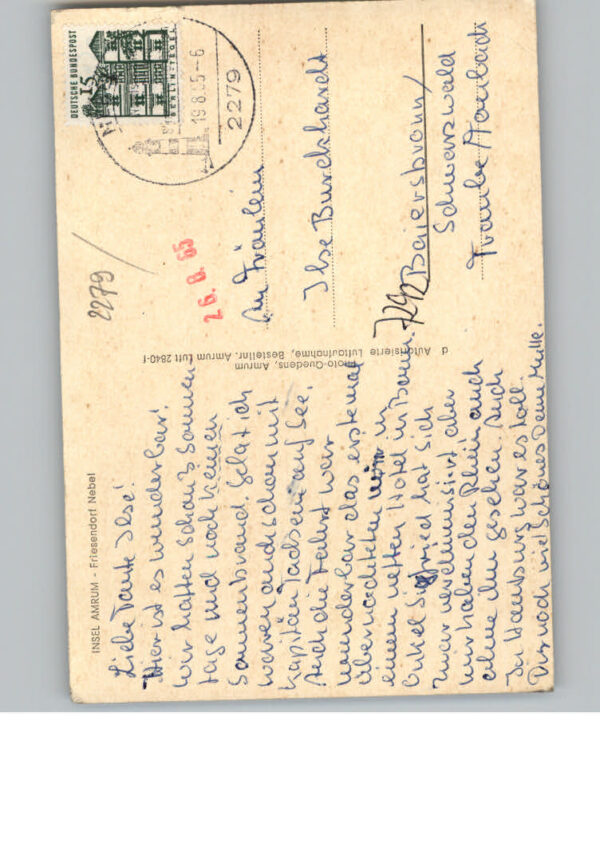 INSEL AMRUM - Friesendorf Nebel
Liebe Tante Ilse!
Hier ist es wunderbar!
Wir hatten schon 3 Sonnen
tage und noch keinen
Sonnenbrand. Gela + ich
waren auch schon mit
Kapitän Tadsen auf See.
Auch die Fahrt war
wunderbar das erstemal
übernachteten wir in
einem netten Hotel in Bonn.
Onkel Siegfried hat sich
zwar aber
wir haben den Rhein auch
ohne ihn gesehen. Auch
In Hamburg war es toll.
noch viel Schönes Deine
Photo-Quedens, Amrum, Bestellnr. Amrum Luft 2840-f
d Autorisierte Luftaufnahme,
2279
26. 8. 65
DEUTSCHE BUNDESPOST
15
BERLIN-TEGEL
19.8.65-6
2279
An Fräulein
Ilse Burckhardt
Baiersbronn/
Schwarzwald
Traube